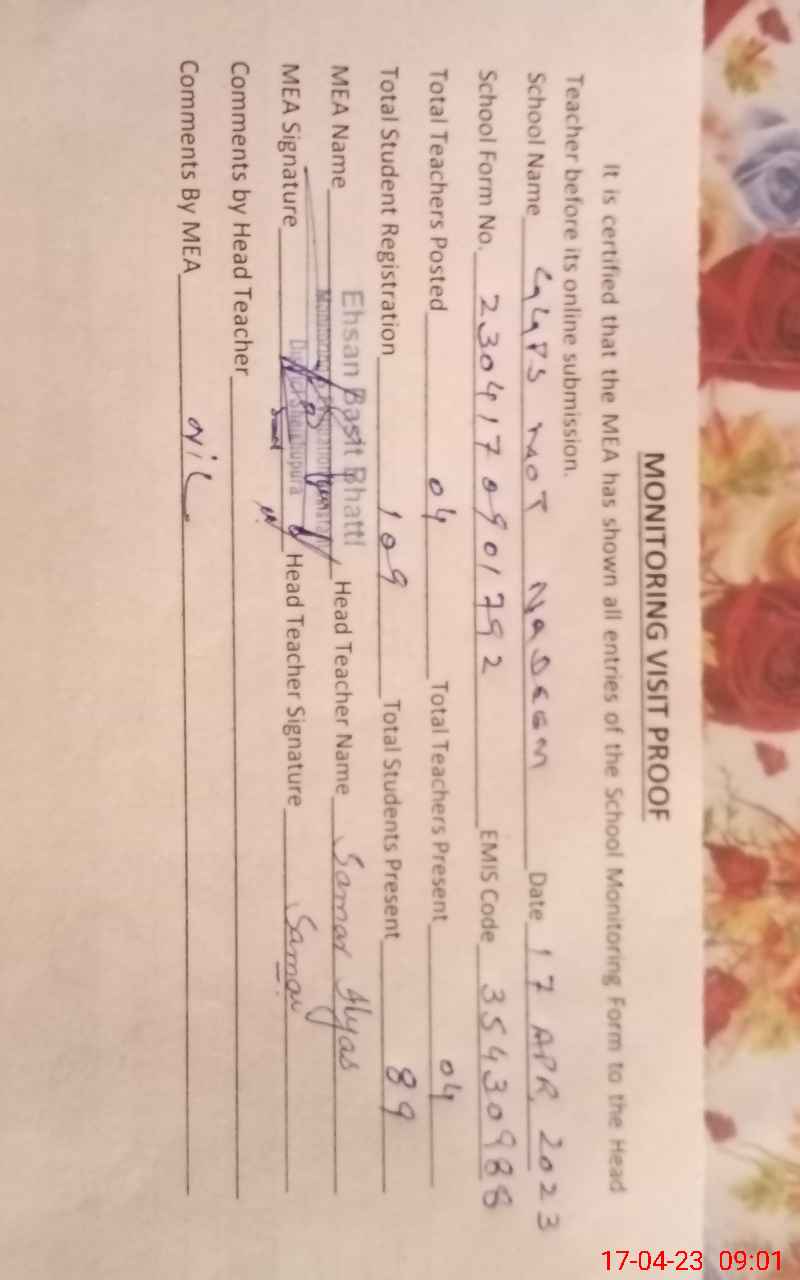 MONITORING VISIT PROOF
It is certified that the MEA has shown all entries of the School Monitoring Form to the Head
Teacher before its online submission.
School Name GGPS MOT NADEEM Date 17 APR 2023
School Form No. 2304170901792 EMIS Code 35430988
Total Teachers Posted 04 Total Teachers Present 04
Total Student Registration 109 Total Students Present 89
Ehsan Basit Bhatti
MEA Name Head Teacher Name Samar Ilyas
Monitoring
District Sheikhupura
MEA Signature Head Teacher Signature Samar
Comments by Head Teacher
Comments By MEA Nil
17-04-23 09:01